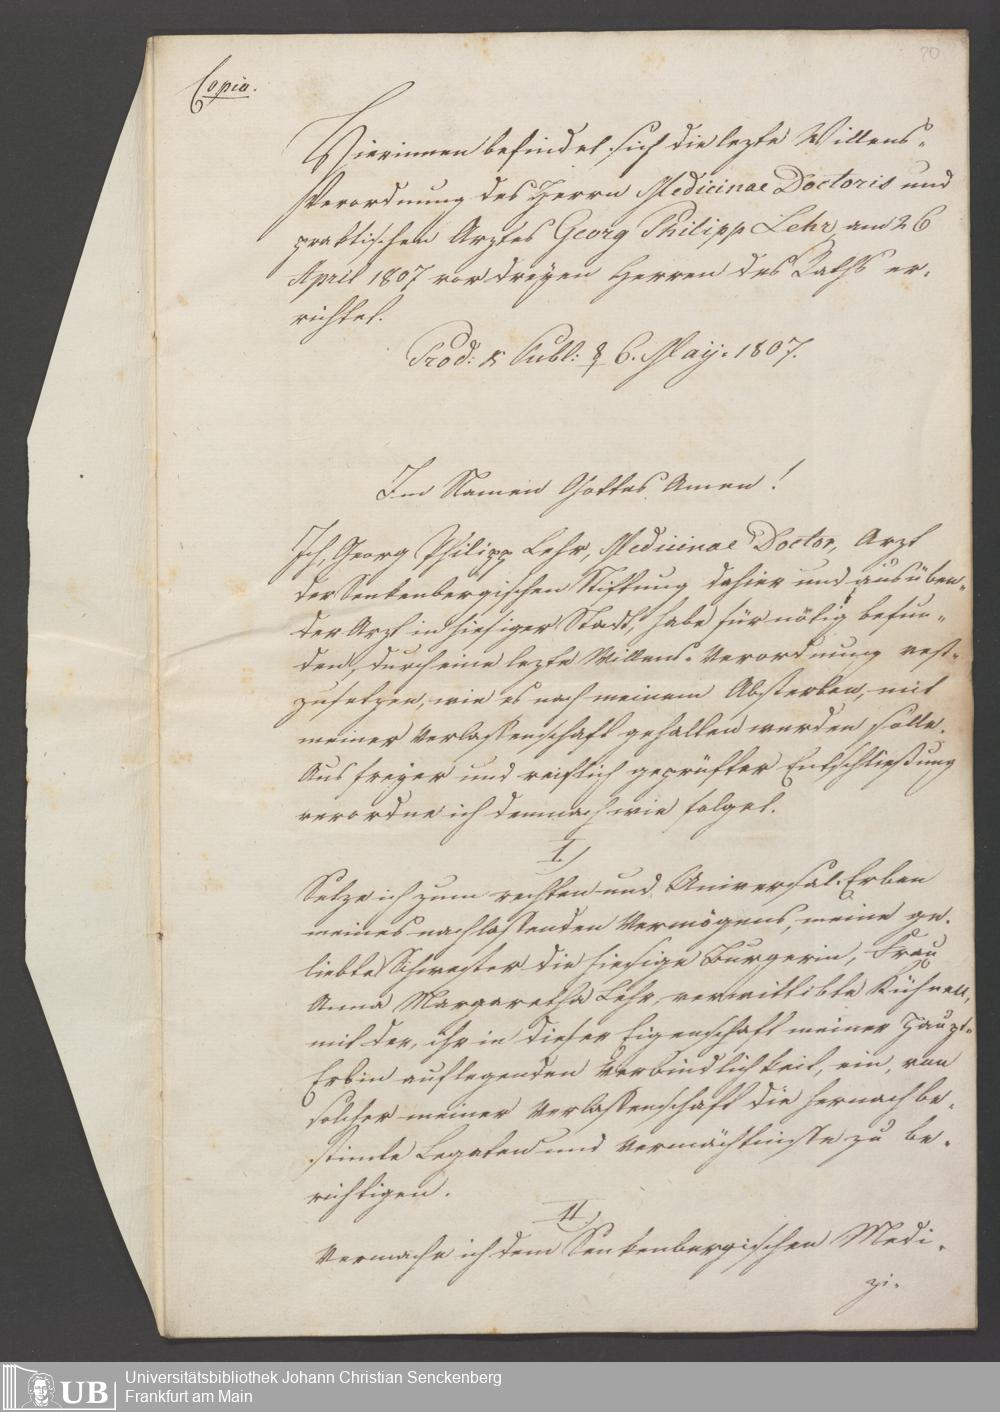 Copia.
70
Hierinnen befindet sich die lezte Willens-
Verordnung des Herrn Medicinae Doctoris und
praktischen Arztes Georg Philipp Lehr, am 26
April 1807 vor dreyen Herren des Raths er-
richtet.
Prod: & Publ: ☿ 6. May. 1807.
Im Namen Gottes Amen!
Ich, Georg Philipp Lehr, Medicinae Doctor, Arzt
der Senkenbergischen Stiftung dahier und ausüben-
der Arzt in hiesiger Stadt, habe für nötig befun-
den, durch eine lezte Willens-Verordnung vest-
zusetzen, wie es nach meinem Absterben, mit
meiner Verlassenschaft gehalten werden solle.
Aus freyer und reiflich geprüfter Entschließung
verordne ich demnach wie folget.
I.)
Setze ich zum rechten und Universal-Erben
meines nachlassenden Vermögens, meine ge-
liebte Schwester die hiesige Burgerin, Frau
Anna Margaretha Lehr, verwittibte Kühnell,
mit der, ihr in dieser Eigenschaft meiner Haupt-
Erbin auflegenden Verbindlichkeit, ein, von
solcher meiner Verlassenschaft die hernach be-
stimte Legaten und Vermächtnisse zu be-
richtigen.
II.)
Vermache ich dem Senkenbergischen Medi-
zi-
UB
Universitätsbibliothek Johann Christian Senckenberg
Frankfurt am Main